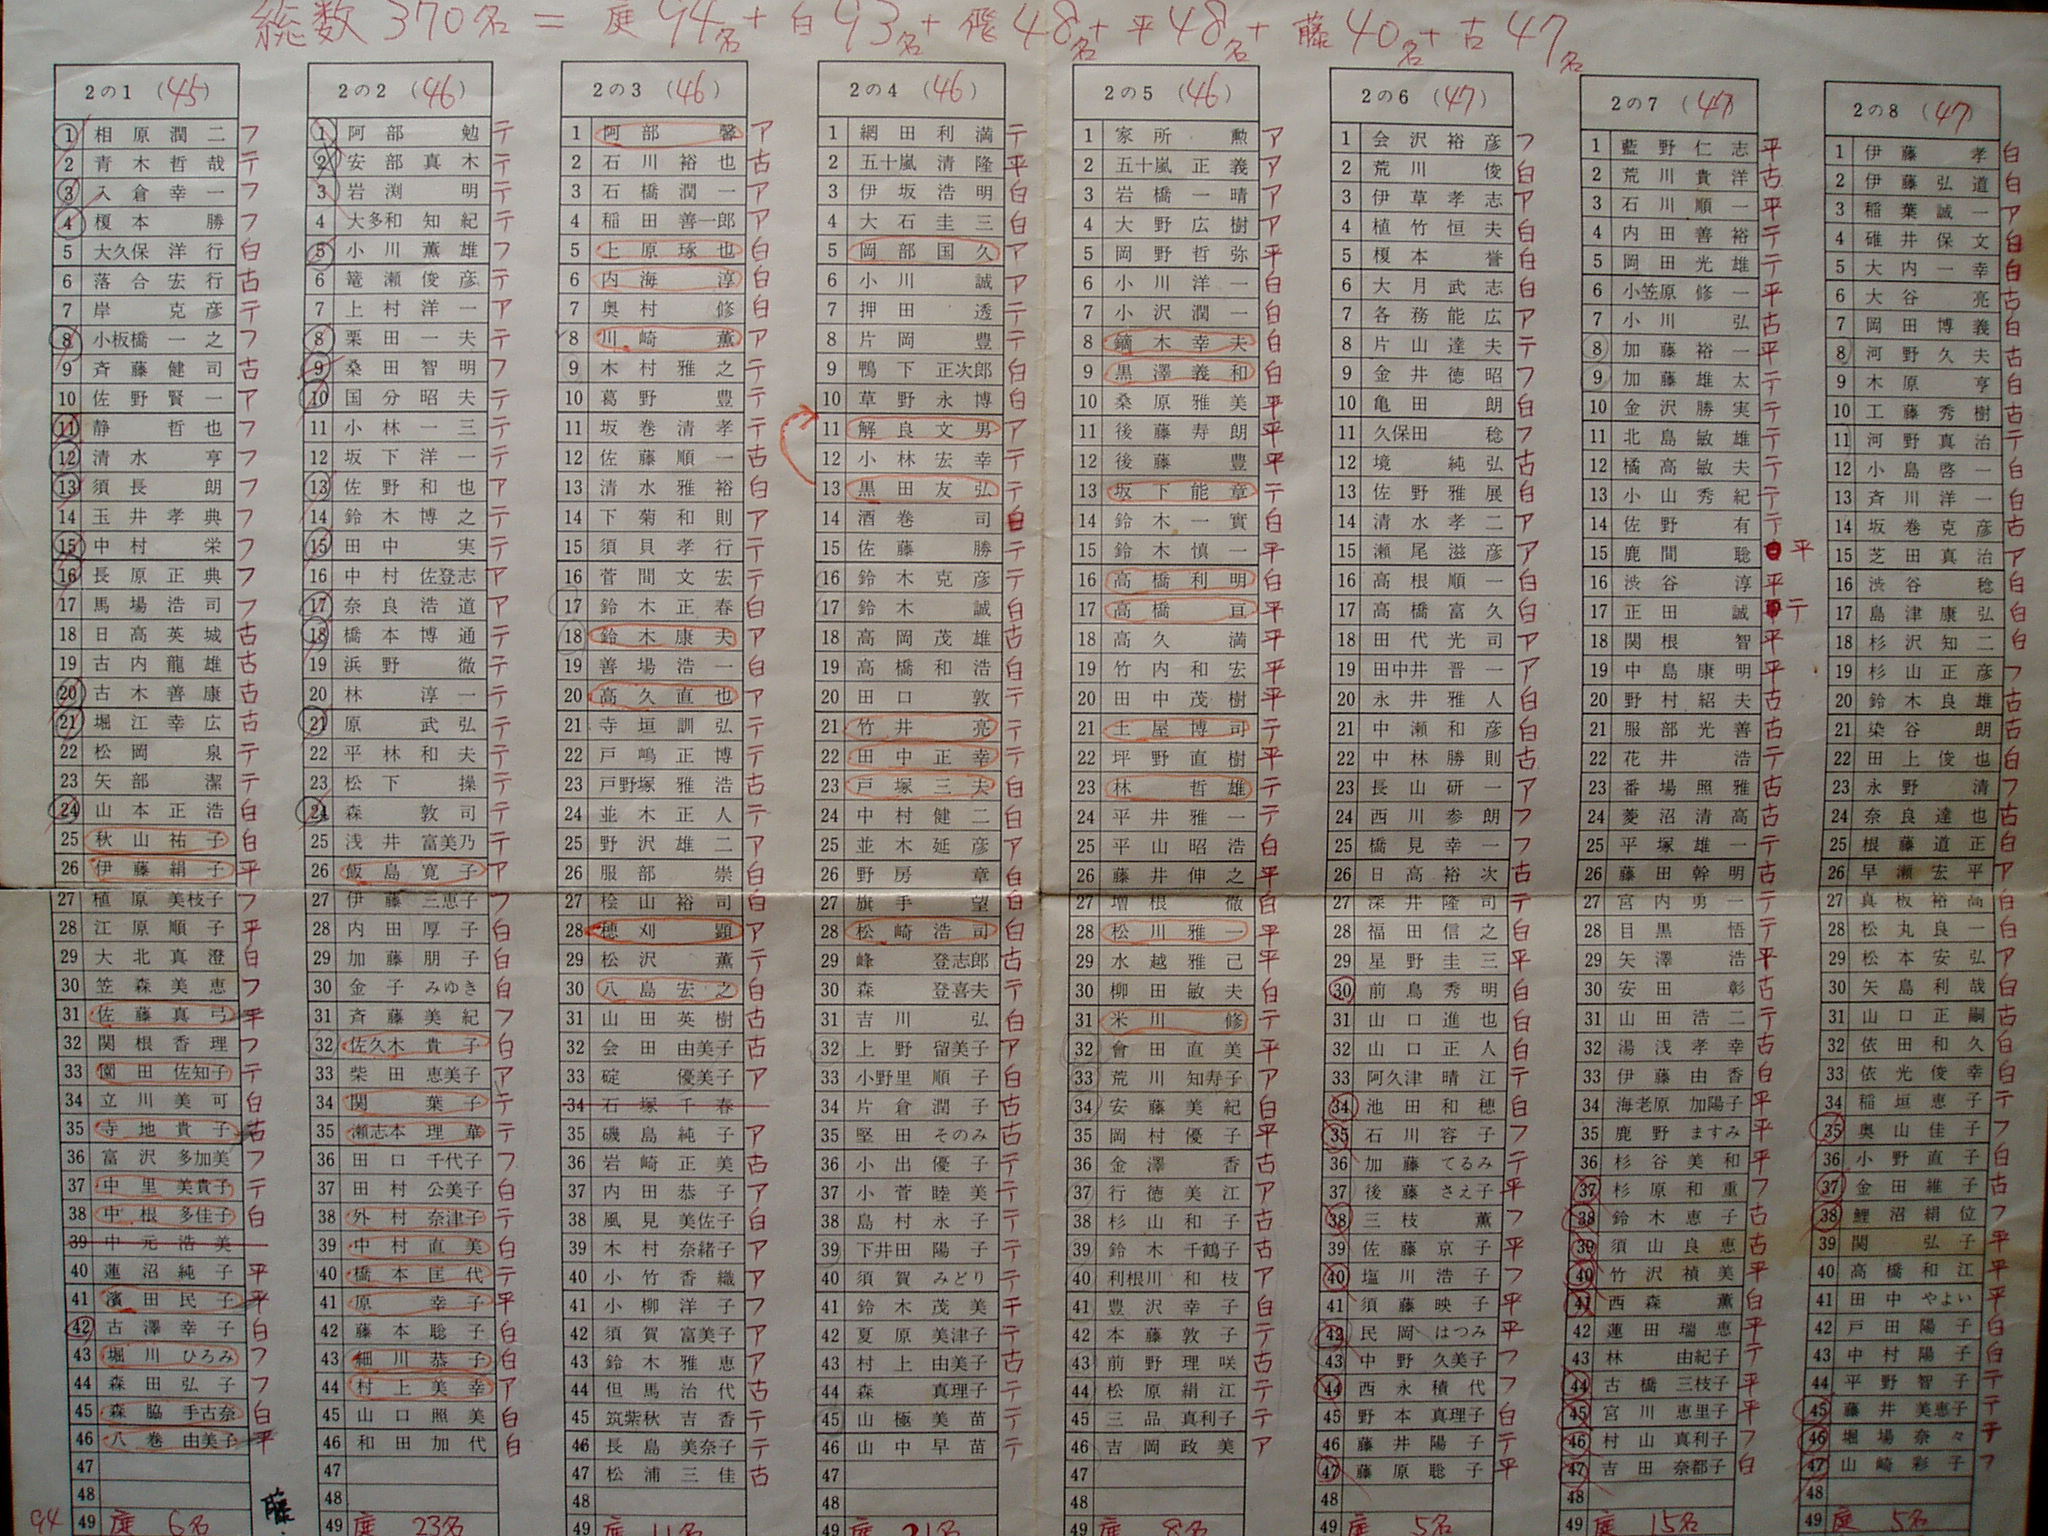 総数370名 = 庭94名 + 白93名 + 飛48名 + 平48名 + 藤40名 + 古47名
2の1 (45)
1 相原潤二 フ
2 青木哲哉 テ
3 入倉幸一 フ
4 榎本勝 フ
5 大久保洋行 白
6 落合宏行 古
7 岸克彦 テ
8 小板橋一之 フ
9 斉藤健司 古
10 佐野賢一 ア
11 静哲也 フ
12 清水亨 フ
13 須長朗 フ
14 玉井孝典 フ
15 中村栄 フ
16 長原正典 フ
17 馬場浩司 フ
18 日高英城 古
19 古内龍雄 古
20 古木善康 古
21 堀江幸広 古
22 松岡泉 テ
23 矢部潔 テ
24 山本正浩 白
25 秋山祐子 白
26 伊藤絹子 平
27 植原美枝子 フ
28 江原順子 平
29 大北真澄 白
30 笠森美恵 フ
31 佐藤真弓 平
32 関根香理 フ
33 園田佐知子 テ
34 立川美可 白
35 寺地貴子 古
36 富沢多加美 フ
37 中里美貴子 テ
38 中根多佳子 白
39 中元浩美
40 蓮沼純子 平
41 濱田民子 平
42 古澤幸子 白
43 堀川ひろみ フ
44 森田弘子 フ
45 森脇手古奈 白
46 八巻由美子 平
47
48
94 49 庭 6名
藤
2の2 (46)
1 阿部勉 テ
2 安部真木 テ
3 岩渕明 テ
4 大多和知紀 テ
5 小川薫雄 フ
6 篭瀬俊彦 テ
7 上村洋一 ア
8 栗田一夫 テ
9 桑田智明 フ
10 国分昭夫 テ
11 小林一三 テ
12 坂下洋一 テ
13 佐野和也 ア
14 鈴木博之 テ
15 田中実 テ
16 中村佐登志 ア
17 奈良浩道 ア
18 橋本博通 テ
19 浜野徹 テ
20 林淳一 テ
21 原武弘 テ
22 平林和夫 テ
23 松下操 テ
24 森敦司 テ
25 浅井富美乃 テ
26 飯島寛子 ア
27 伊藤三恵子 フ
28 内田厚子 白
29 加藤朋子 白
30 金子みゆき 白
31 斉藤美紀 フ
32 佐久木貴子 白
33 柴田恵美子 ア
34 関葉子 テ
35 瀬志本理華 テ
36 田口千代子 フ
37 田村公美子 白
38 外村奈津子 テ
39 中村直美 白
40 橋本匡代 テ
41 原幸子 平
42 藤本聡子 白
43 細川恭子 白
44 村上美幸 ア
45 山口照美 白
46 和田加代 白
47
48
49 庭 23名
2の3 (46)
1 阿部馨 ア
2 石川裕也 古
3 石橋潤一 ア
4 稲田善一郎 ア
5 上原琢也 白
6 内海淳 白
7 奥村修 白
8 川崎薫 ア
9 木村雅之 テ
10 葛野豊 テ
11 坂巻清孝 テ
12 佐藤順一 古
13 清水雅裕 白
14 下菊和則 ア
15 須貝孝行 テ
16 菅間文宏 テ
17 鈴木正春 白
18 鈴木康夫 ア
19 善場浩一 白
20 高久直也 ア
21 寺垣訓弘 テ
22 戸嶋正博 テ
23 戸野塚雅浩 古
24 並木正人 テ
25 野沢雄二 ア
26 服部崇 白
27 桧山裕司 白
28 穂刈顕 ア
29 松沢薫 テ
30 八島宏之 白
31 山田英樹 古
32 会田由美子 古
33 碇優美子 ア
34 石塚千春
35 磯島純子 ア
36 岩崎正美 古
37 内田恭子 ア
38 風見美佐子 白
39 木村奈緒子 ア
40 小竹香織 ア
41 小柳洋子 フ
42 須賀富美子 ア
43 鈴木雅恵 ア
44 但馬治代 古
45 筑紫秋吉香 テ
46 長島美奈子 テ
47 松浦三佳 古
48
49 庭 11名
2の4 (46)
1 網田利満 テ
2 五十嵐清隆 平
3 伊坂浩明 白
4 大石圭三 白
5 岡部国久 ア
6 小川誠 ア
7 押田透 テ
8 片岡豊 テ
9 鴨下正次郎 白
10 草野永博 白
11 解良文男 ア
12 小林宏幸 テ
13 黒田友弘 テ
14 酒巻司 白
15 佐藤勝 テ
16 鈴木克彦 テ
17 鈴木誠 白
18 高岡茂雄 古
19 高橋和浩 白
20 田口敦 テ
21 竹井亮 テ
22 田中正幸 テ
23 戸塚三夫 白
24 中村健二 白
25 並木延彦 ア
26 野房章 白
27 旗手望 白
28 松崎浩司 白
29 峰登志郎 古
30 森登喜夫 テ
31 吉川弘 白
32 上野留美子 ア
33 小野里順子 白
34 片倉潤子 古
35 堅田そのみ 古
36 小出優子 テ
37 小菅睦美 テ
38 島村永子 テ
39 下井田陽子 テ
40 須賀みどり テ
41 鈴木茂美 テ
42 夏原美津子 テ
43 村上由美子 古
44 森真理子 テ
45 山極美苗 テ
46 山中早苗 テ
47
48
49 庭 21名
2の5 (46)
1 家所勲 ア
2 五十嵐正義 ア
3 岩橋一晴 ア
4 大野広樹 ア
5 岡野哲弥 平
6 小川洋一 白
7 小沢潤一 白
8 鏑木幸夫 白
9 黒澤義和 白
10 桑原雅美 平
11 後藤寿朗 平
12 後藤豊 平
13 坂下能章 テ
14 鈴木一實 白
15 鈴木慎一 平
16 高橋利明 白
17 高橋亘 平
18 高久満 平
19 竹内和宏 平
20 田中茂樹 平
21 土屋博司 テ
22 坪野直樹 平
23 林哲雄 テ
24 平井雅一 テ
25 平山昭浩 白
26 藤井伸之 平
27 増根徹 白
28 松川雅一 平
29 水越雅己 平
30 柳田敏夫 白
31 米川修 テ
32 會田直美 平
33 荒川知寿子 ア
34 安藤美紀 白
35 岡村優子 平
36 金澤香 古
37 行徳美江 ア
38 杉山和子 古
39 鈴木千鶴子 古
40 利根川和枝 ア
41 豊沢幸子 白
42 本藤敦子 テ
43 前野理咲 古
44 松原絹江 テ
45 三品真利子 テ
46 吉岡政美 ア
47
48
49 庭 8名
2の6 (47)
1 会沢裕彦 フ
2 荒川俊 白
3 伊草孝志 ア
4 植竹恒夫 白
5 榎本誉 白
6 大月武志 白
7 各務能広 ア
8 片山達夫 テ
9 金井徳昭 フ
10 亀田朗 白
11 久保田稔 フ
12 境純弘 古
13 佐野雅展 白
14 清水孝二 ア
15 瀬尾滋彦 ア
16 高根順一 白
17 高橋富久 白
18 田代光司 ア
19 田中井晋一 ア
20 永井雅人 白
21 中瀬和彦 白
22 中林勝則 古
23 長山研一 ア
24 西川参朗 フ
25 橋見幸一 フ
26 日高裕次 古
27 深井隆司 テ
28 福田信之 白
29 星野圭三 平
30 前鳥秀明 白
31 山口進也 白
32 山口正人 白
33 阿久津晴江 テ
34 池田和穂 白
35 石川容子 フ
36 加藤てるみ テ
37 後藤さえ子 平
38 三枝薫 フ
39 佐藤京子 平
40 塩川浩子 フ
41 須藤映子 平
42 民岡はつみ 平
43 中野久美子 フ
44 西永積代 フ
45 野本真理子 白
46 藤井陽子 テ
47 藤原聡子 平
48
49 庭 5名
2の7 (47)
1 藍野仁志 平
2 荒川貴洋 古
3 石川順一 平
4 内田善裕 テ
5 岡田光雄 テ
6 小笠原修一 平
7 小川弘 古
8 加藤裕一 平
9 加藤雄太 テ
10 金沢勝実 テ
11 北島敏雄 テ
12 橘高敏夫 テ
13 小山秀紀 テ
14 佐野有 テ
15 鹿間聡 平
16 渋谷淳 平
17 正田誠 テ
18 関根智 平
19 中島康明 平
20 野村紹夫 古
21 服部光善 古
22 花井浩 テ
23 番場照雅 古
24 菱沼清高 古
25 平塚雄一 テ
26 藤田幹明 古
27 宮内勇一 テ
28 目黒悟 テ
29 矢澤浩 平
30 安田彰 古
31 山田浩二 テ
32 湯浅孝幸 古
33 伊藤由香 白
34 海老原加陽子 平
35 鹿野ますみ 平
36 杉谷美和 平
37 杉原和重 フ
38 鈴木恵子 古
39 須山良恵 古
40 竹沢禎美 平
41 西森薫 白
42 蓮田瑞恵 平
43 林由紀子 テ
44 古橋三枝子 平
45 宮川恵里子 平
46 村山真利子 フ
47 吉田奈都子 白
48
49 庭 15名
2の8 (47)
1 伊藤孝 白
2 伊藤弘道 白
3 稲葉誠一 ア
4 碓井保文 白
5 大内一幸 白
6 大谷亮 古
7 岡田博義 白
8 河野久夫 古
9 木原亨 白
10 工藤秀樹 古
11 河野真治 テ
12 小島啓一 白
13 斉川洋一 白
14 坂巻克彦 古
15 芝田真治 ア
16 渋谷稔 白
17 島津康弘 白
18 杉沢知二 白
19 杉山正彦 フ
20 鈴木良雄 古
21 染谷朗 古
22 田上俊也 白
23 永野清 フ
24 奈良達也 古
25 根藤道正 白
26 早瀬宏平 ア
27 真板裕高 白
28 松丸良一 白
29 松本安弘 ア
30 矢島利哉 白
31 山口正嗣 古
32 依田和久 白
33 依光俊幸 白
34 稲垣恵子 テ
35 奥山佳子 フ
36 小野直子 白
37 金田維子 古
38 鯉沼絹位 フ
39 関弘子 平
40 高橋和江 平
41 田中やよい 平
42 戸田陽子 白
43 中村陽子 白
44 平野智子 テ
45 藤井美恵子 テ
46 堀場奈々 テ
47 山崎彩子 フ
48
49 庭 5名